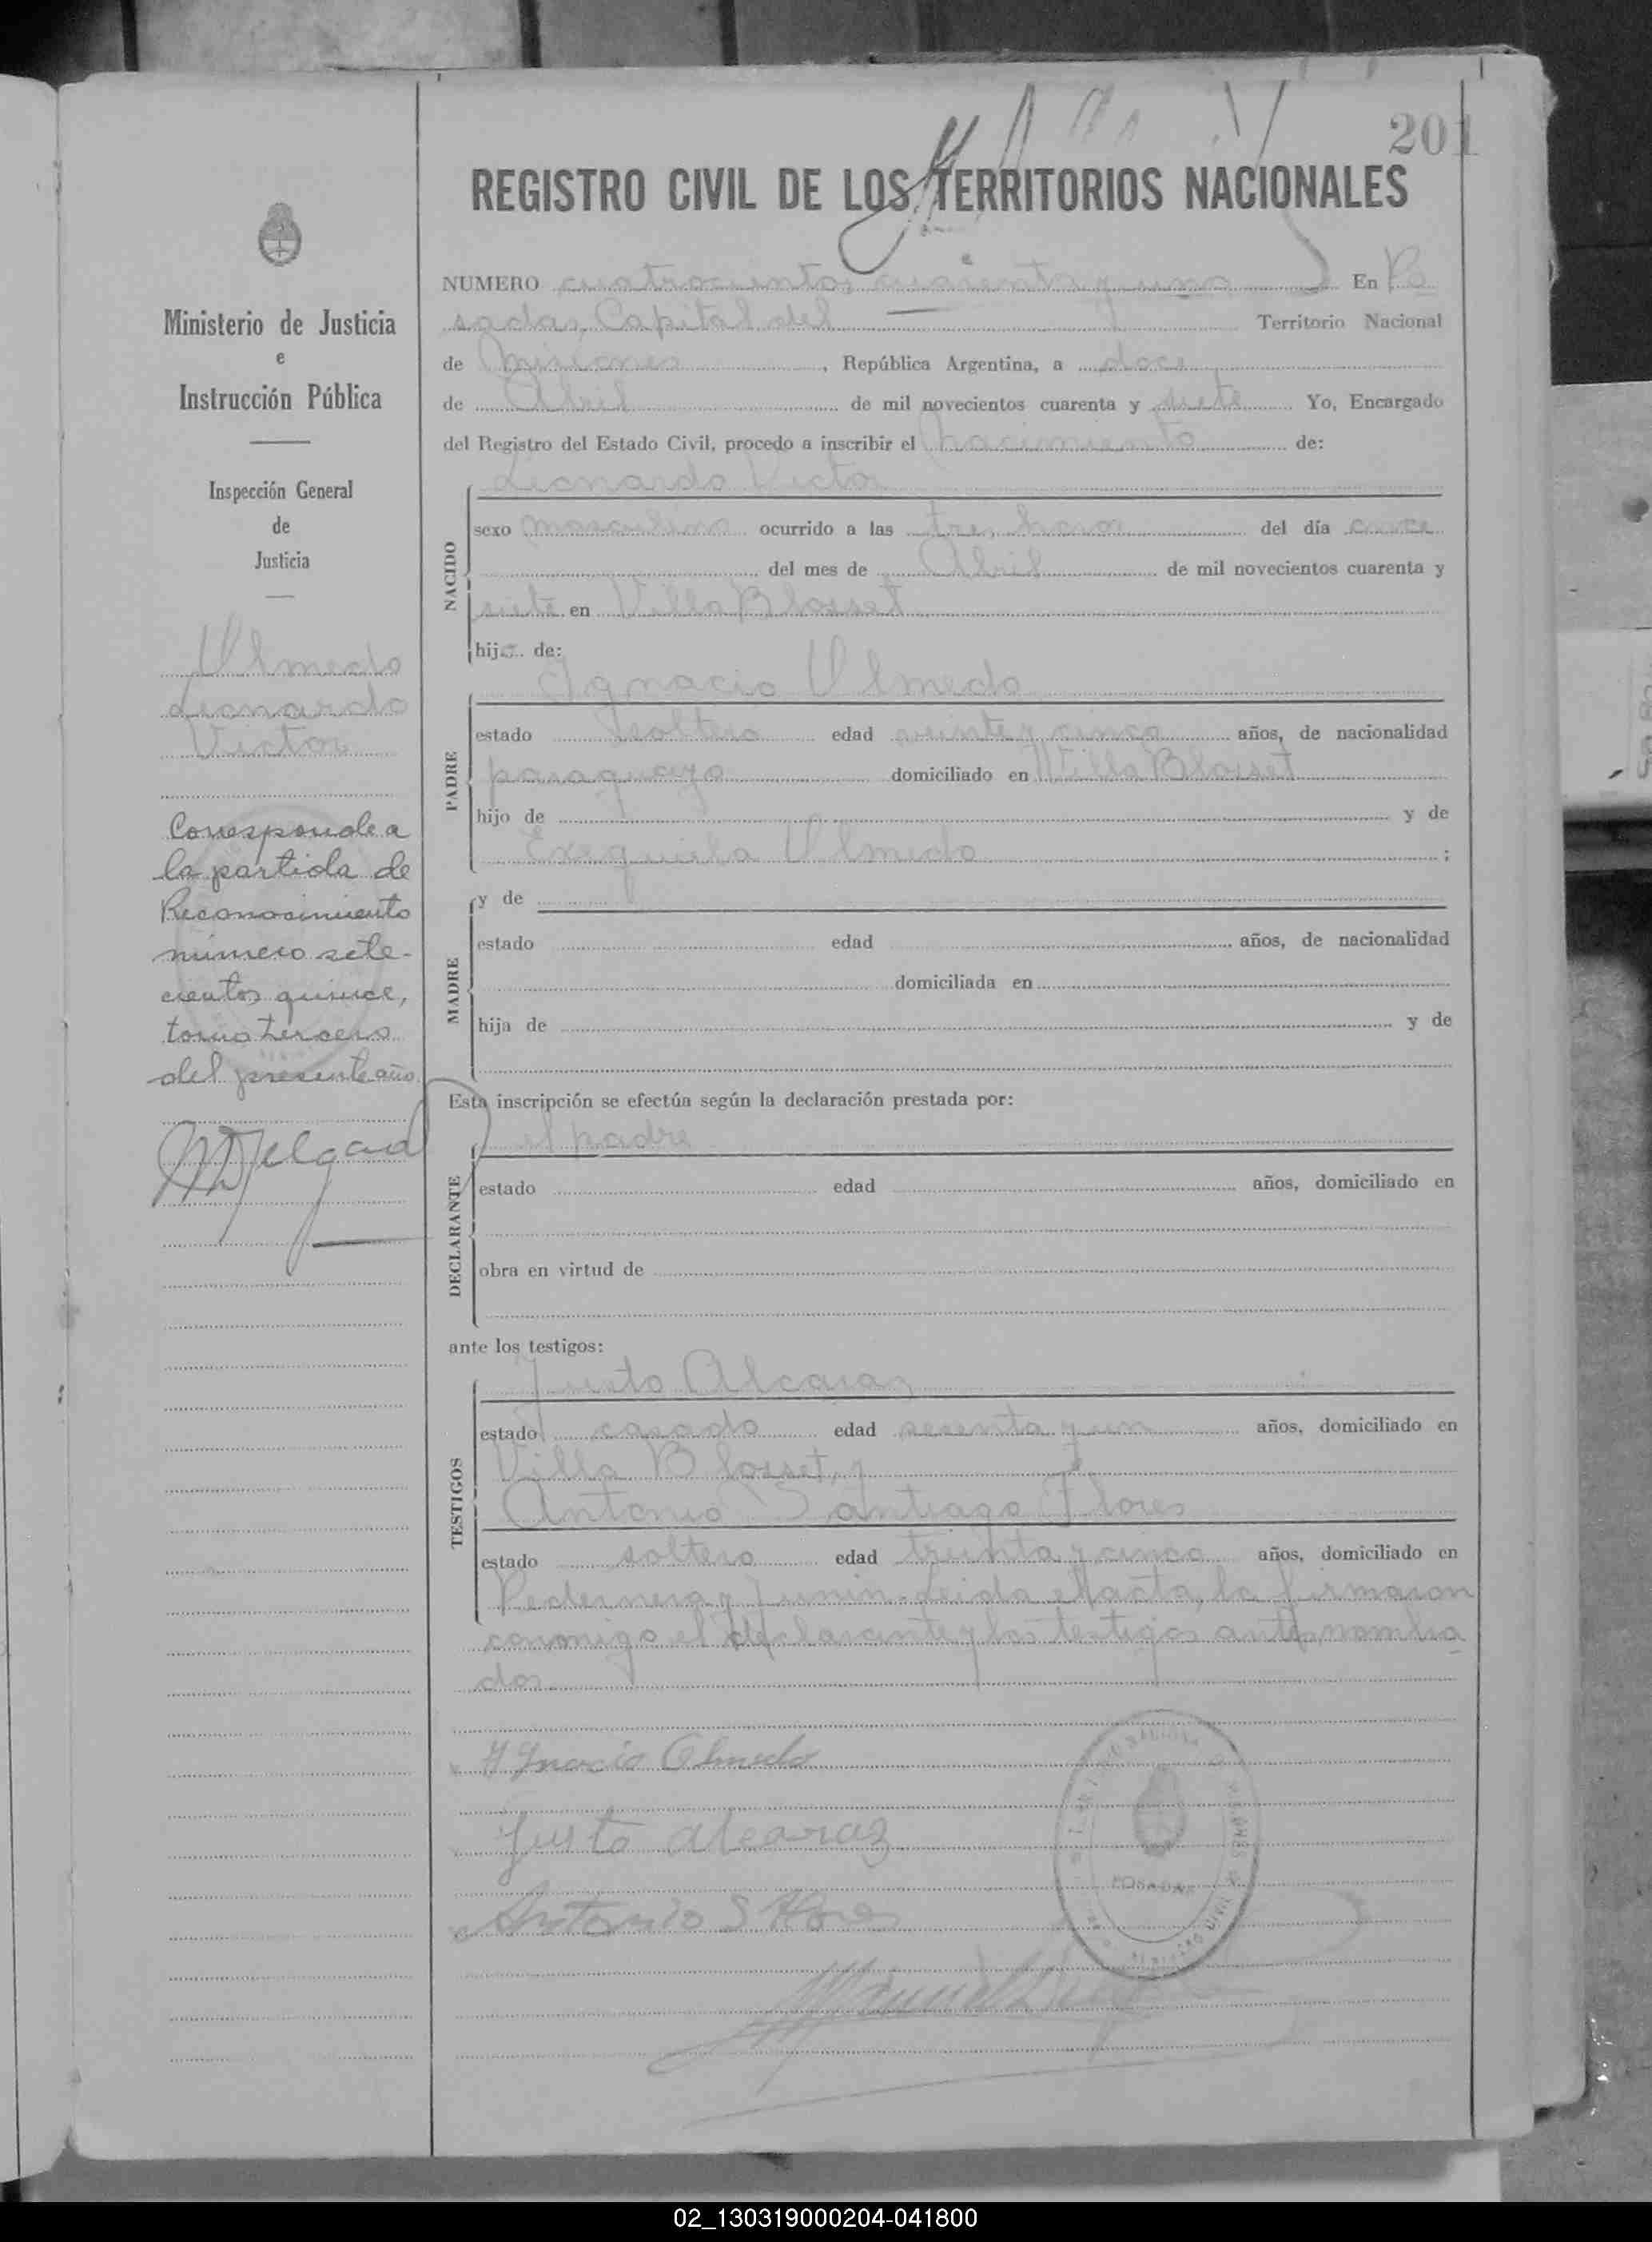 201
REGISTRO CIVIL DE LOS TERRITORIOS NACIONALES
NUMERO cuatrocientos cuarenta y uno En Po
sadas, Capital del Territorio Nacional
de Misiones, República Argentina, a doce
de Abril de mil novecientos cuarenta y siete Yo, Encargado
del Registro del Estado Civil, procedo a inscribir el nacimiento de:
Leonardo Victor
NACIDO
sexo masculino ocurrido a las tres horas del día once
del mes de Abril de mil novecientos cuarenta y
siete en Villa Blosset
hijo de:
Ignacio Ulmedo
PADRE
estado soltero edad veinte y cinco años, de nacionalidad
paraguayo domiciliado en Villa Blosset
hijo de y de
Exequiela Ulmedo ;
MADRE
y de
estado edad años, de nacionalidad
domiciliada en
hija de y de
Esta inscripción se efectúa según la declaración prestada por:
el padre
DECLARANTE
estado edad años, domiciliado en
obra en virtud de
ante los testigos:
Justo Alcaraz
TESTIGOS
estado casado edad sesenta y un años, domiciliado en
Villa Blosset, y
Antonio Santiago Flores
estado soltero edad treinta y cinco años, domiciliado en
Pedernera y Junin. Leida el acta, la firmaron
conmigo el declarante y los testigos antes nombra
dos.
Ignacio Olmedo
Justo alcaraz
Antonio S Flores
POSADAS
Ministerio de Justicia
e
Instrucción Pública
Inspección General
de
Justicia
Ulmedo
Leonardo
Victor
Corresponde a
la partida de
Reconocimiento
número sete-
cientos quince,
tomo tercero
del presente año
MDelgad
02_130319000204-041800